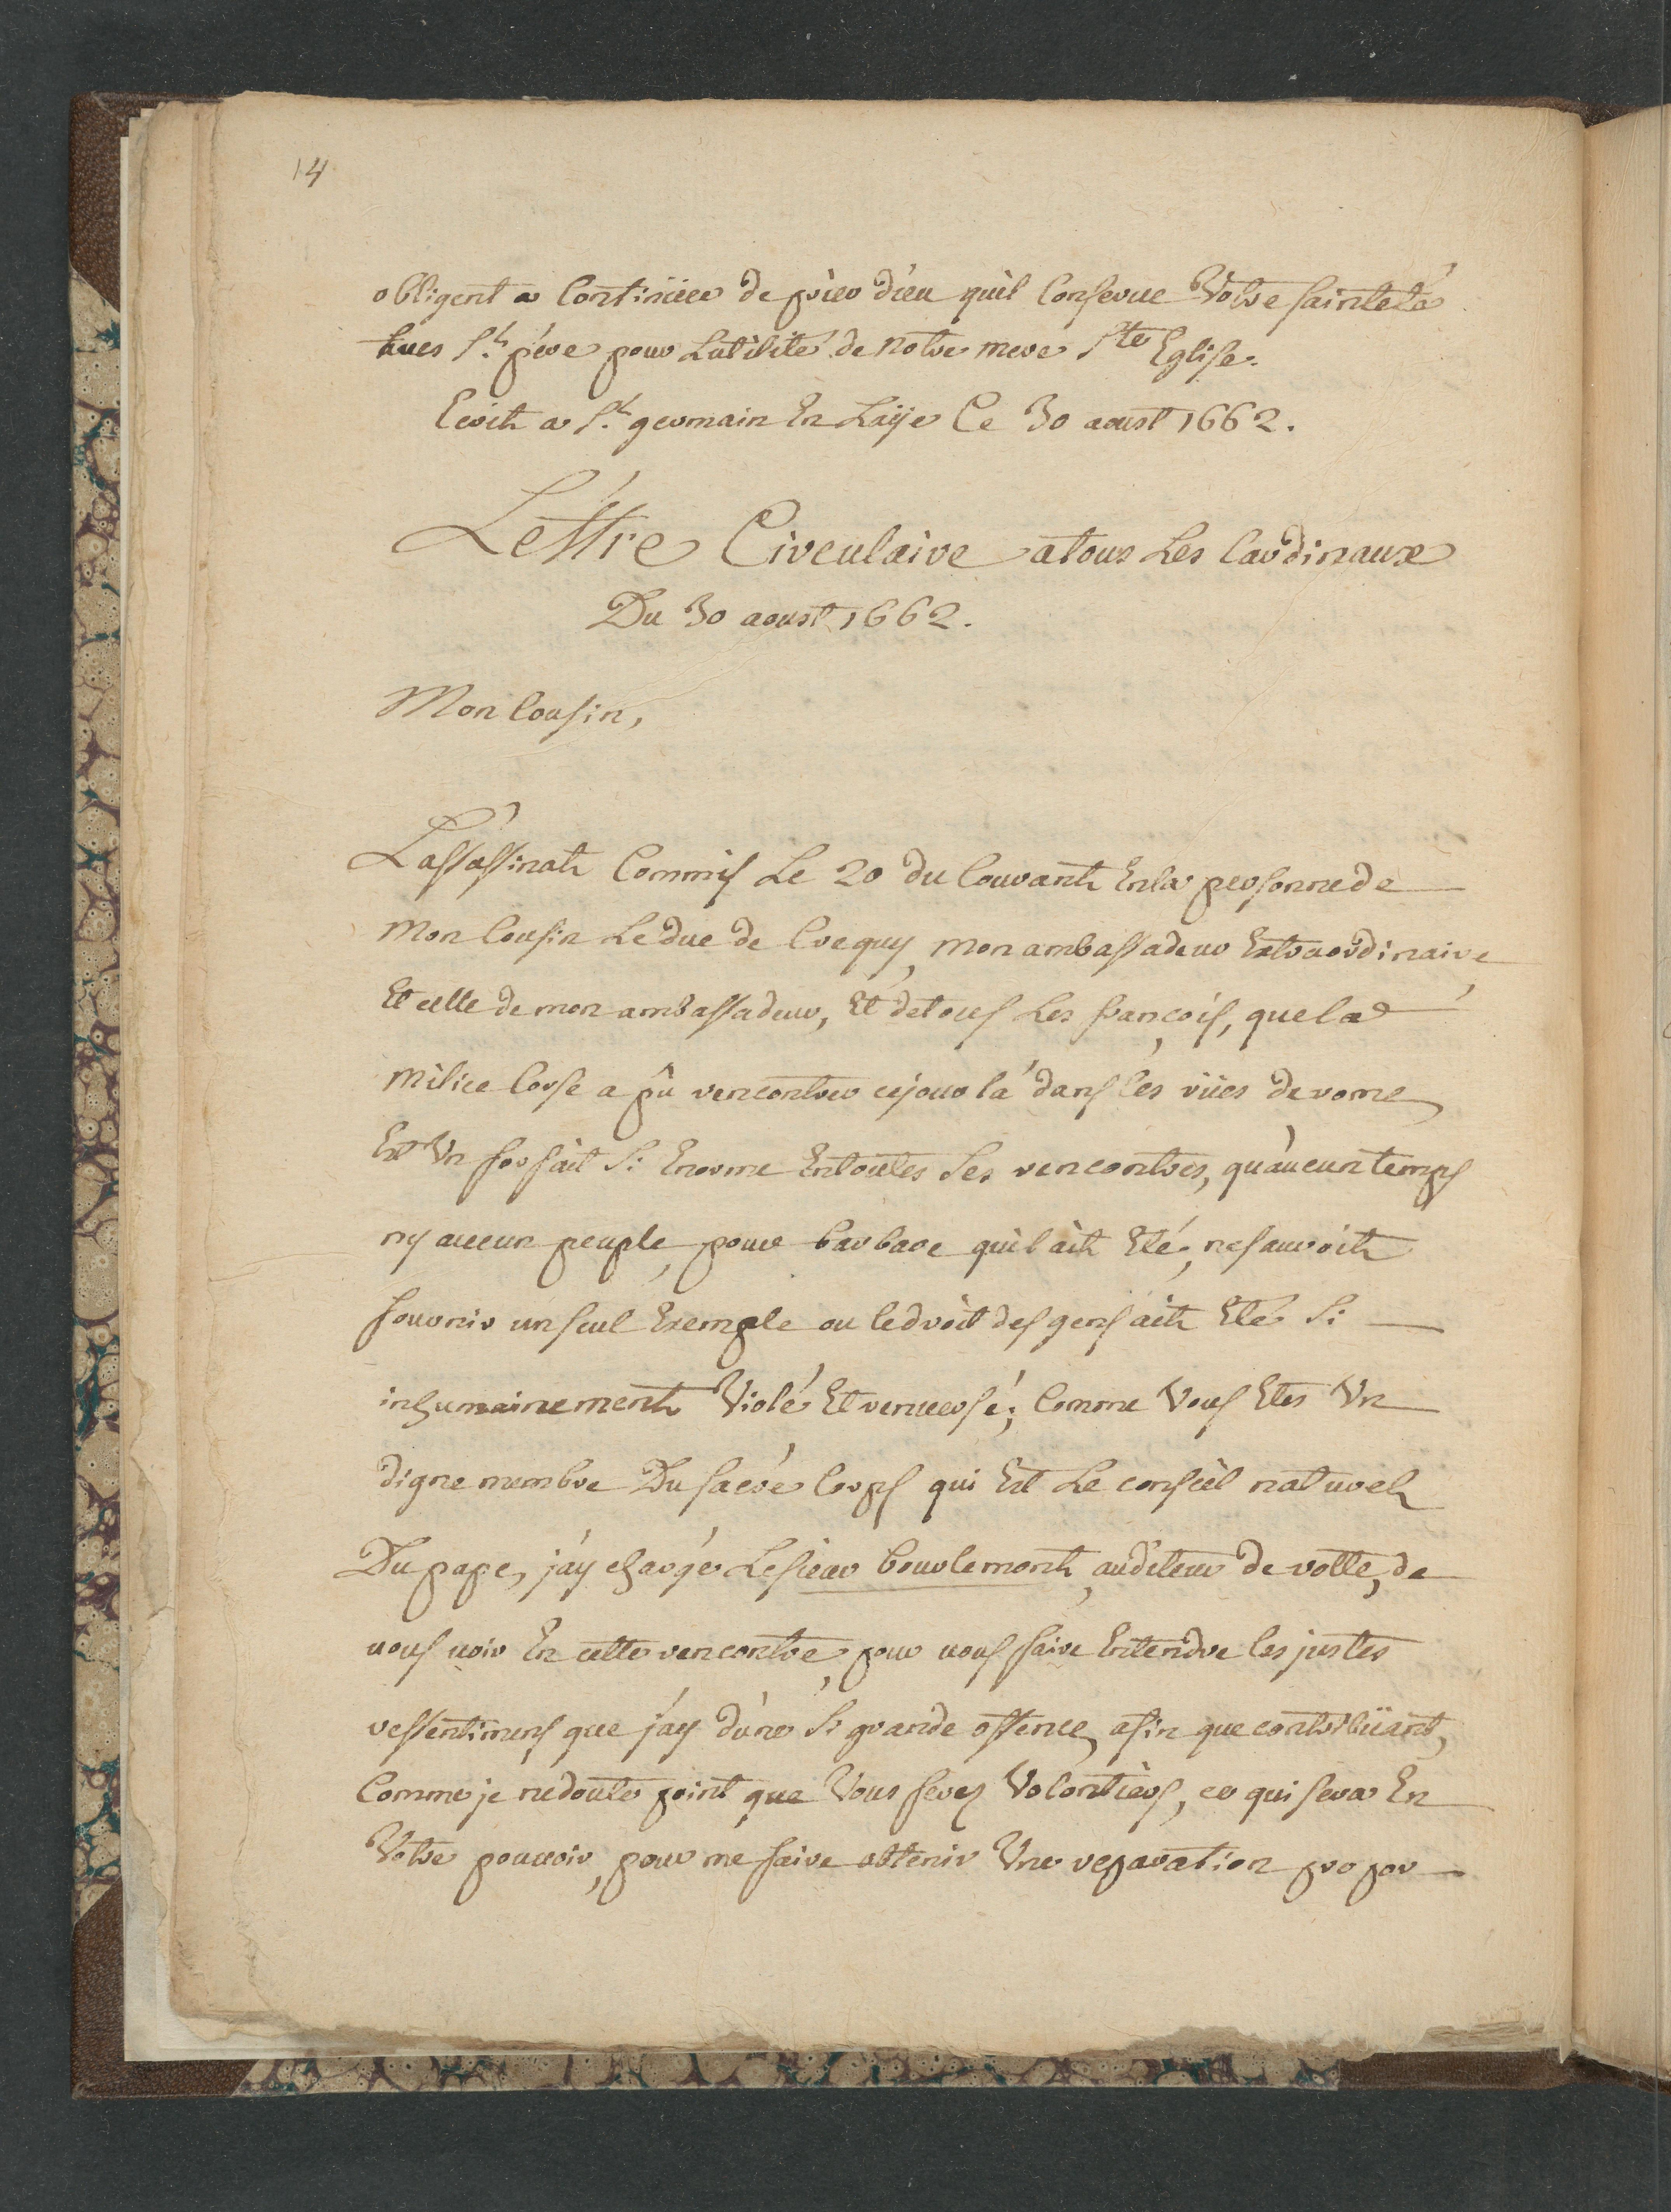 14
obligent a Continüer de prier dieu quil Conserue Votre sainteté
tres St. pére pour Lutilité de notre mere Ste Eglise.
Ecrit a St. germain En Laÿe Ce 30 aoust 1662.
Lettre Circulaire atous Les Cardinaux
Du 30 aoust 1662.
Mon Cousin,
L'assassinat Commis Le 20 du Courant Enla personne de
Mon Cousin Le duc de Crequy, mon ambassadeur Extraordinaire,
Et celle de mon ambassadeur, Et detous Les françois, que la
milice Corse a pû rencontrer cejour lá dans les rües de rome
Est Vn forfait Si Enorme Entoutes Ses rencontres, qu'aucun temps
ny aucun peuple, pour barbare quil ait Eté, nesauroit
fournir un seul Exemple ou le droit des gens ait Eté Si
inhumainement Violé Et renuersé; Comme Vous Etes Vn
digne membre Du sacré Corps qui Est Le conseil naturel
Du pape, j'ay chargé Lesieur bourlemont, auditeur de rotte, de
uous uoir En cette rencontre, pour uous faire Entendre les justes
ressentimens que j'ay d'une Si grande offence, afin que contribüant,
Comme je nedoute point que Vous ferez Volontiers, ce qui sera En
Votre pouuoir, pour me faire obtenir Vne reparation propor